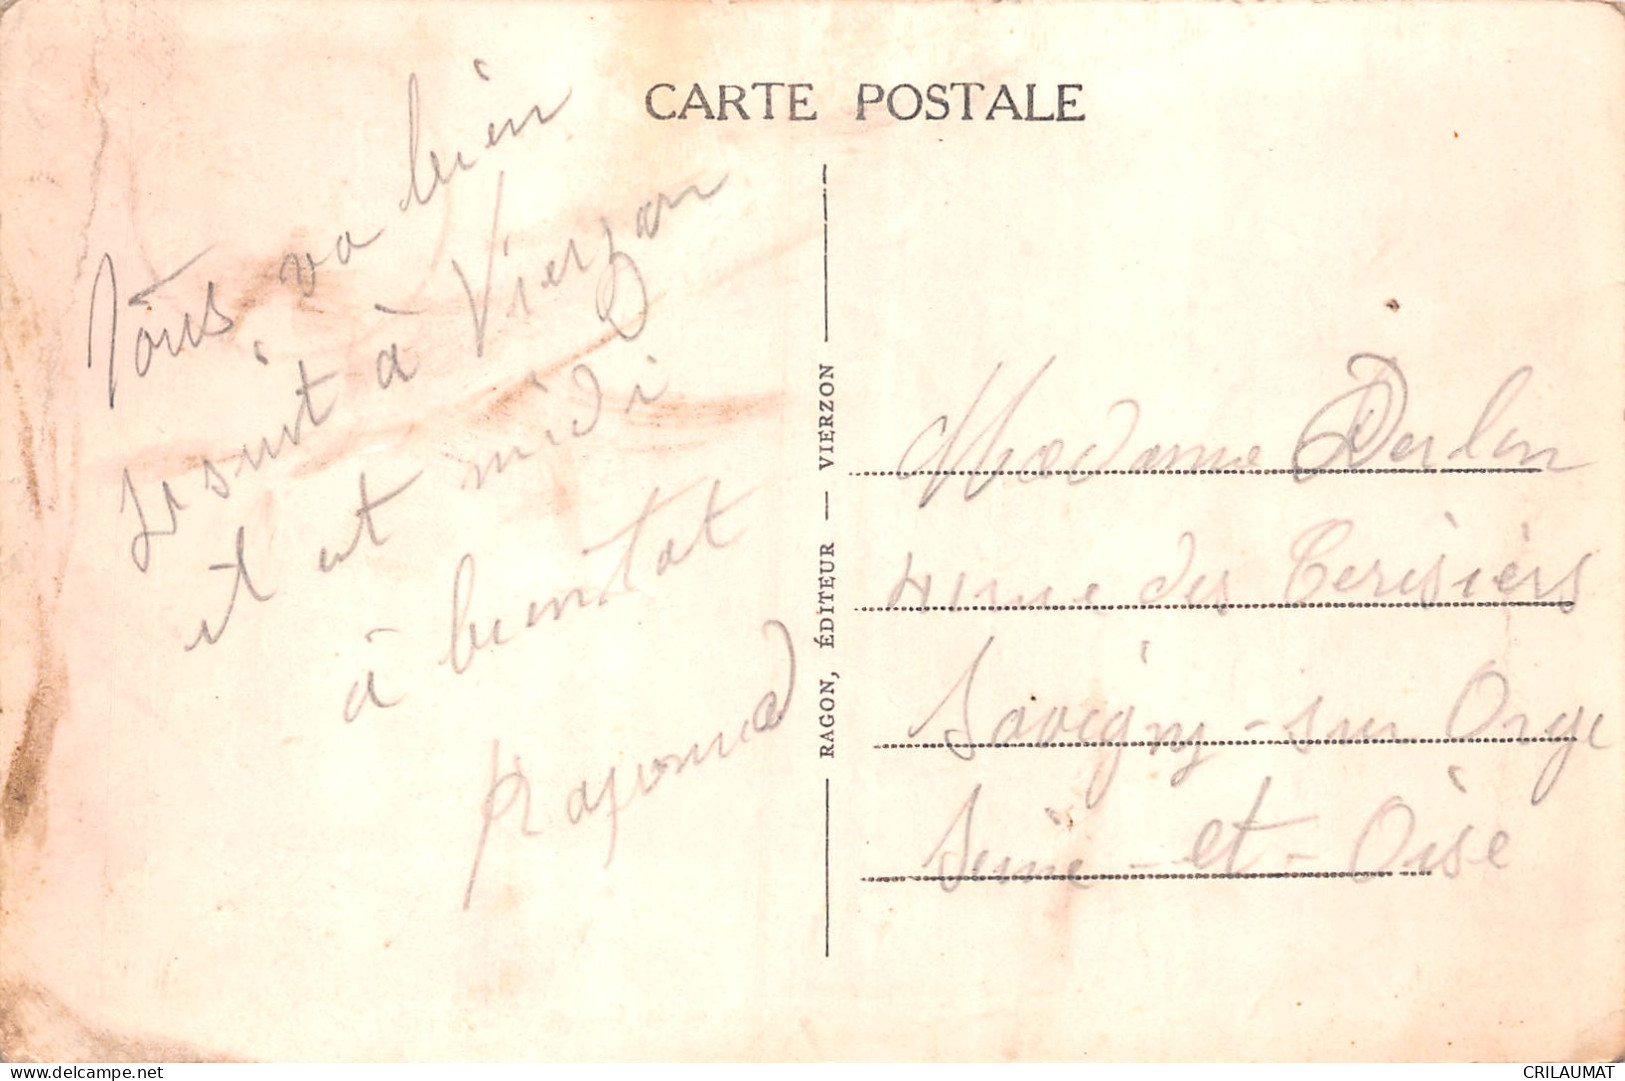 CARTE POSTALE
Tous va bien
Je suit à Vierzon
il est midi
à bientot
Raymond
RAGON, ÉDITEUR — VIERZON
Madame Derlon
41 rue des Cerisiers
Savigny-sur Orge
Seine-et-Oise
www.delcampe.net
CRILAUMAT